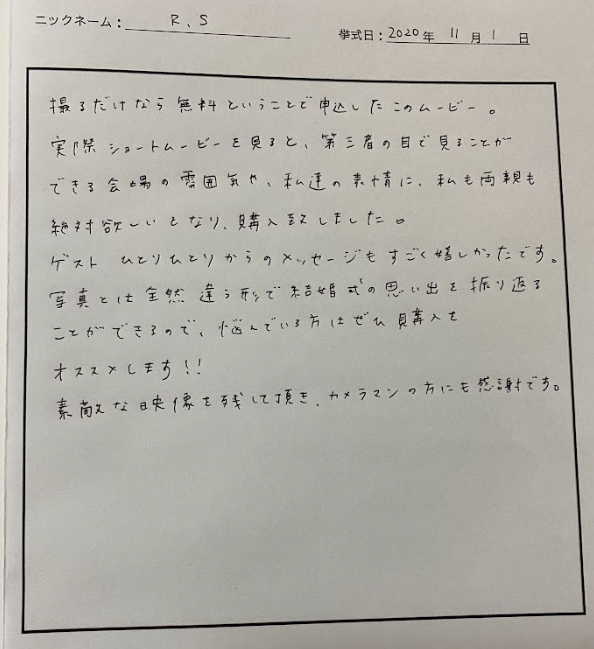 ニックネーム: R、S
挙式日: 2020年 11月 1日
撮るだけなら無料ということで申込したこのムービー。
実際ショートムービーを見ると、第三者の目で見ることが
できる会場の雰囲気や、私達の表情に、私も両親も
絶対欲しいとなり、購入致しました。
ゲスト ひとりひとりからのメッセージもすごく嬉しかったです。
写真とは全然違う形で結婚式の思い出を振り返る
ことができるので、悩んでいる方はぜひ購入を
オススメします!!
素敵な映像を残して頂き、カメラマンの方にも感謝です。